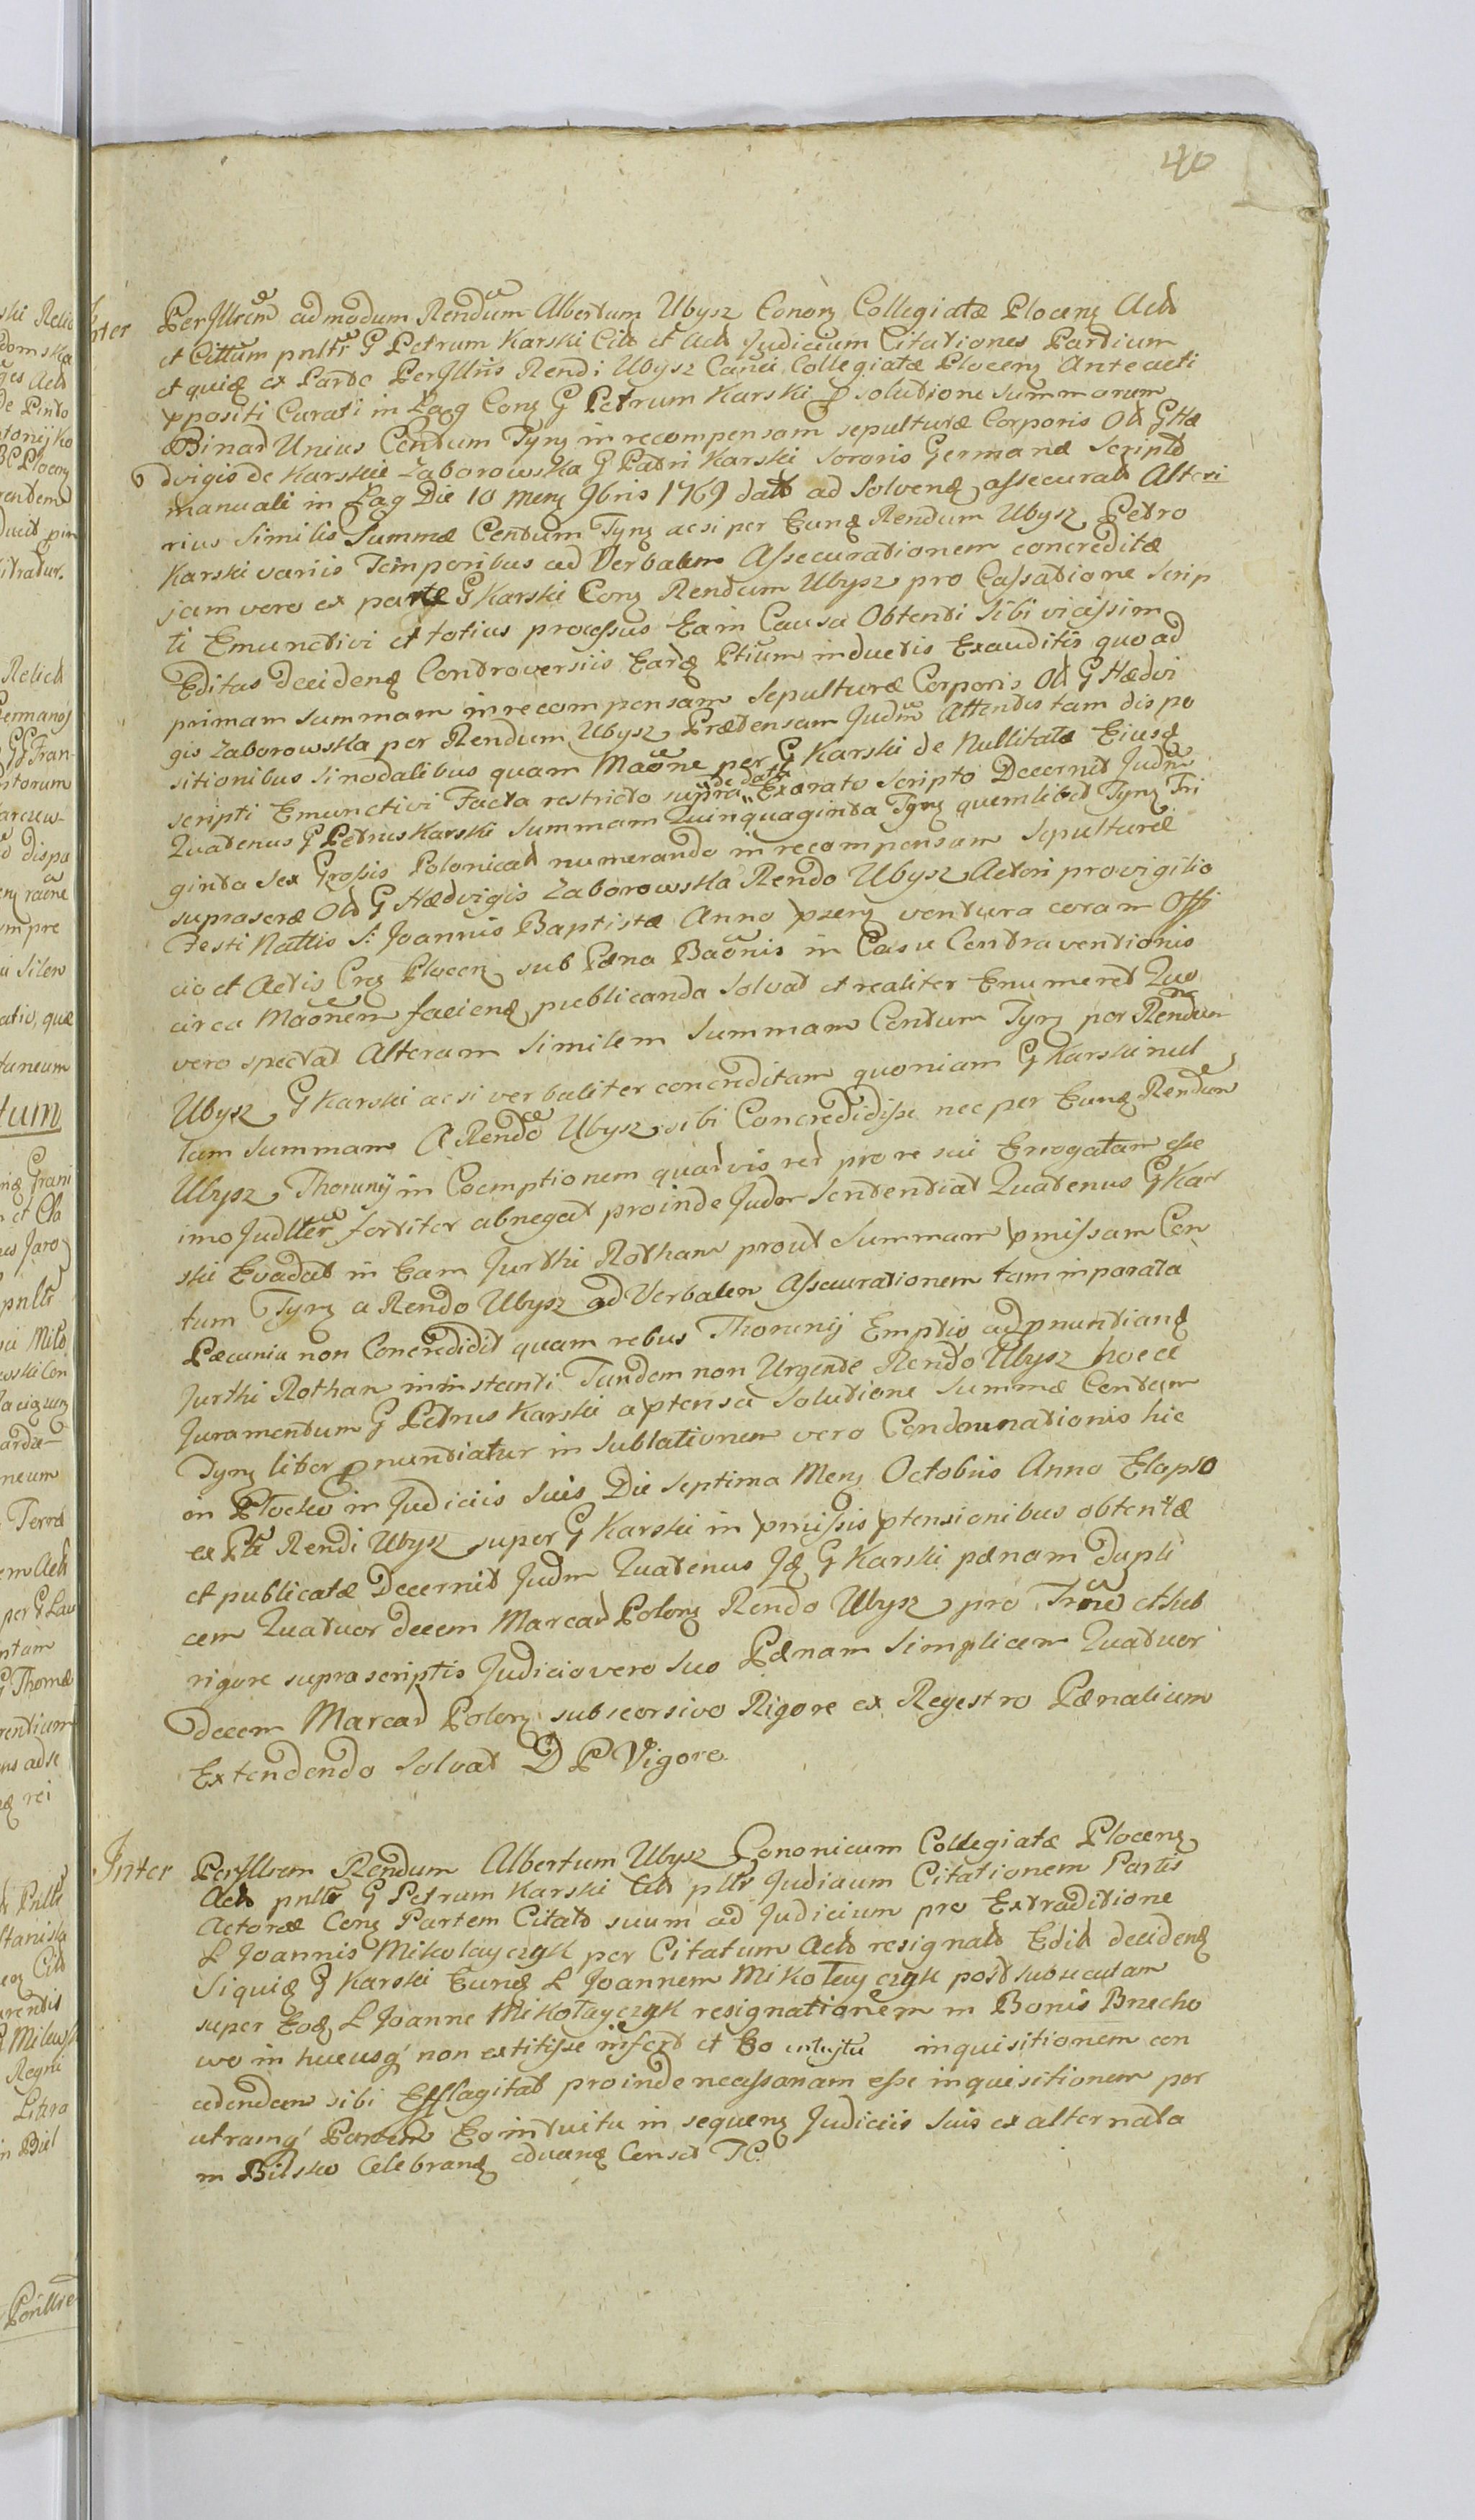 40
Inter PerJllrem admodum Rendum Albertum Ubysz Canon Collegiatæ Plocen Acto
et Cittum pnltr G Petrum Karski Cito et Acto Judicium Citationes Partium
et quidẽ ex Parte PerJllris Rendi Ubysz Canci Collegiatæ Plocen Anteacti
ppositi Curati in Łag Con G Petrum Karski p solutione summarum
Binar Unius Centum Tyn in recompensam sepulturæ Corporis Olt G Hæ
dvigis de Karskie Zaborowska G Patri Karski Sororis Germanæ Scripto
manuali in Łag Die 10 Men 9bris 1769 dato ad Solven assecurato Alteri
rius Similis Summæ Centum Tyn ac si per Eund Rendum Ubysz Petro
Karski variis Temporibus ad Verbalem Assecurationem concreditæ
jam vero ex parte G Karski Con Rendum Ubysz pro Cassatione Scrip
ti Emunctivi et totius processus Ea in Causa Obtenti Sibi vicissim
Editas Deciden Controversiis Eard Ptium inductis Exauditis quo ad
primam Summam in recompensam Sepulturæ Corporis Olt G Hædvi
gis Zaborowska per Rendum Ubysz Prætensam Judm Attentis tam dispo
sitionibus Sinodalibus quam Maõne per G Karski de Nullitate Ejusd
scripti Emunctivi Facta restricto supra de dato Exarato Scripto Decernit Judm
Quatenus G Petrus Karski Summam Quinquaginta Tyn quemlibet Tyn Tri
ginta Sex Grossis Polonicat numerando in recompensam Sepulturæ
supraseræ Olt G Hædvigis Zaborowska Rendo Ubysz Actori pro vigilio
Festi Nattis S: Joannis Baptistæ Anno pzen ventura coram Offi
cio et Actis Cren Plocen sub Pæna Baõnis in Casu Contraventionis
circa Maõnem facien publicanda Solvat et realiter Enumeret Quo
vero spectat Alteram Similem Summam Centum Tyn per Rendum
Ubysz G Karski ac si verbaliter concreditam quoniam G Karski nul
lam Summam A Rendo Ubysz sibi Concredidisse nec per Eund Rendum
Ubysz Thorunij in Coemptionem quarvis rer pro re sui Errogatam esse
imo Judlter fortiter abnegat proinde Judm Sententiat Quatenus G Kar
ski Evadat in Eam Jurthi Rotham prout Summam pmissam Cen
tum Tyn a Rendo Ubysz ad Verbalem Assecurationem tam in parata
Pæcunia non Concredidit quam rebus Thorunij Emptis ad pnuntiand
Jurthi Rotham in instanti Tandem non Urgente Rendo Ubysz hocce
Juramentum G Petrus Karski a ptensa Solutione Summæ Centum
Tyn liber pnuntiatur in Sublationem vero Condemnationis hic
in Płocko in Judiciis Suis Die Septima Men Octobris Anno Elapso
ex Pte Rendi Ubysz super G Karski in pmissis ptensionibus obtentæ
et publicatæ Decernit Judm Quatenus Jd G Karski pænam dupli
cem Quatuor decem Marcar Polon Rendo Ubysz pro Trno et sub
rigore supra scriptis Judicio vero Suo Pænam Simplicem Quatuor
decem Marcar Polon subseorsivo Rigore ex Regestro Pænalium
Extendendo Solvat D P Vigore
Inter PerJllrem Rendum Albertum Ubysz Cononicum Collegiatæ Plocen
Acto pnltr G Petrum Karski Cito pltr Judicium Citationem Partis
Actoreæ Con Partem Citato suum ad Judicium pro Extraditione
L Joannis Mikolayczyk per Citatum Acto resignato Edit deciden
Siquid G Karski Eund L Joannem Mikołayczyk post subsecutam
super Eod L Joanne Mikołayczyk resignationem in Bonis Brzecho
wo in hucusq' non extitisse infert et Eo intuitu inquisitionem con
cedendam sibi Efflagitat proinde necessariam esse inquisitionem per
utramq' Partem Eo intuitu in sequen Judiciis Suis ex alternata
in Bilsko Celebrand educend Censet TC.